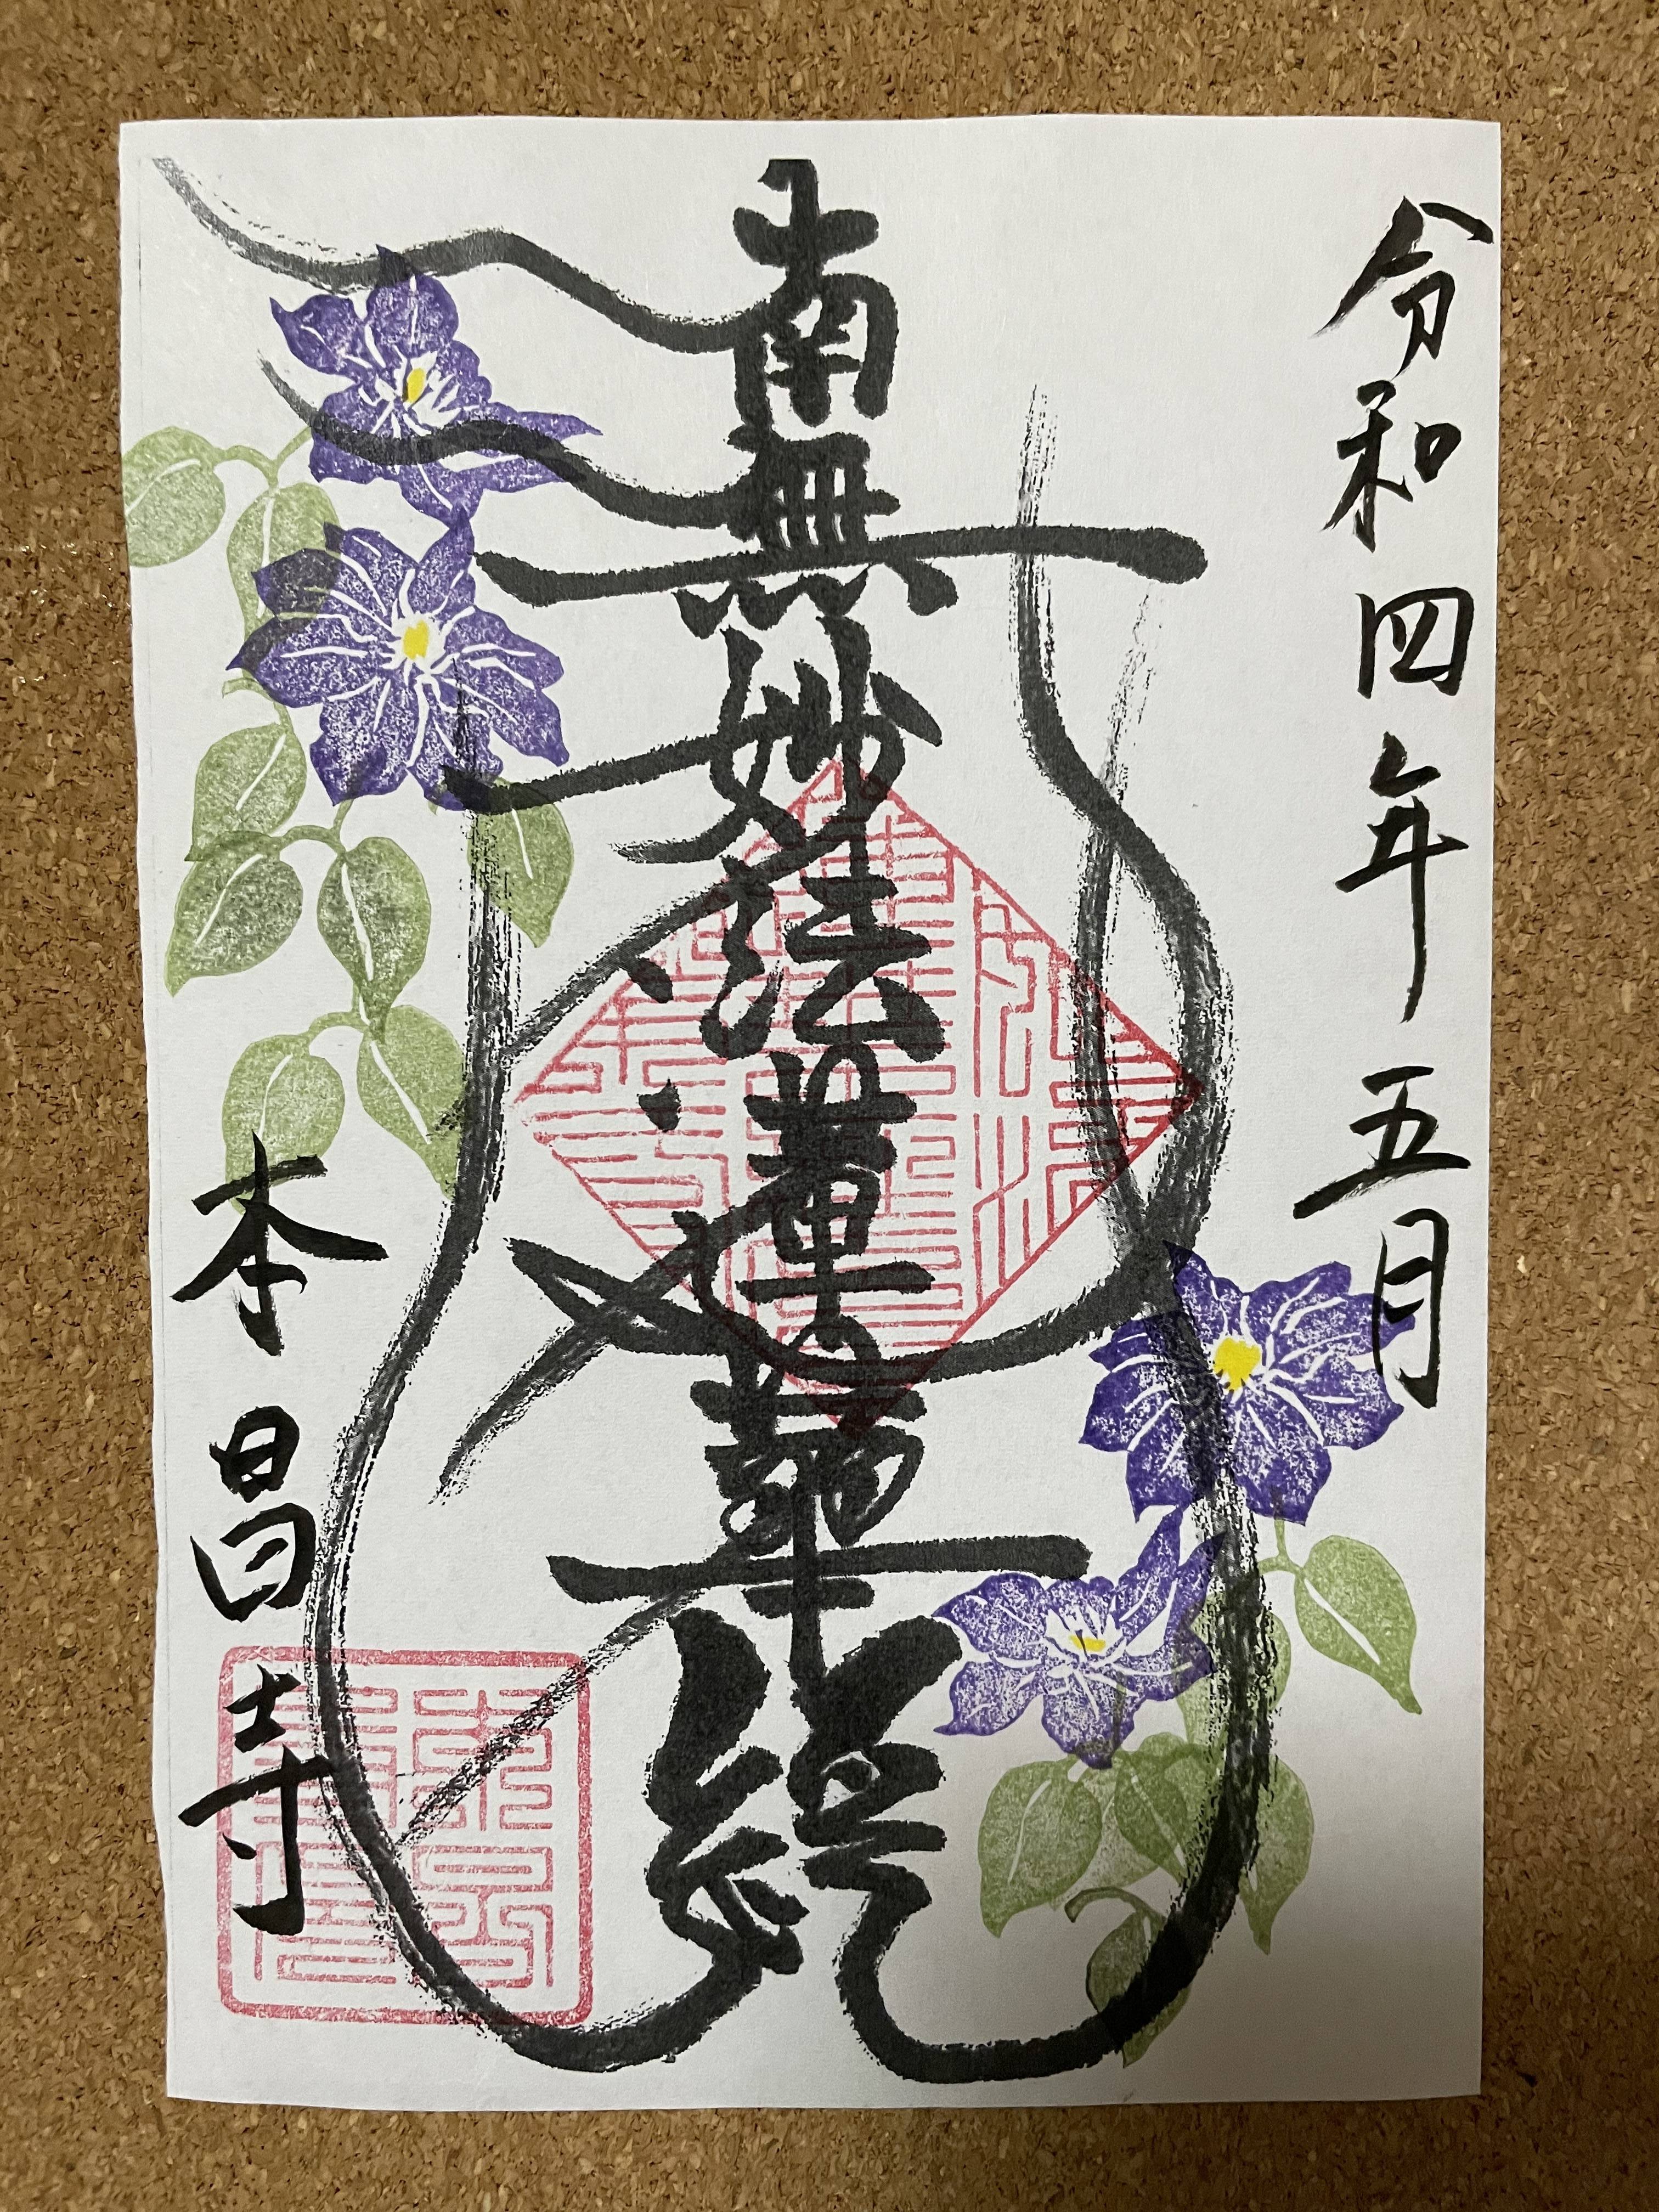 令和四年五月
南無妙法蓮華経
本昌寺